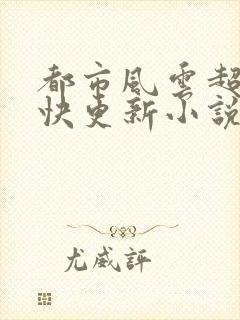 都市風雲超
快更新小說
尤威評